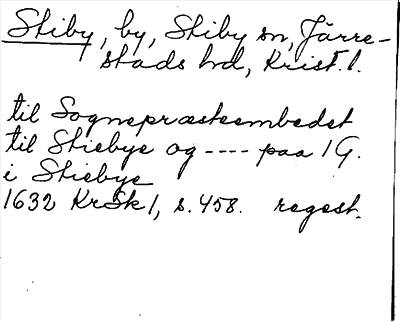 Stiby, by, Stiby sn, Järre-
stads hd, Krist. l.
til Sognepræsteembedet
til Stiebye og ---- paa 1 G.
i Stiebye
1632 KrSk 1, s. 458. regest.